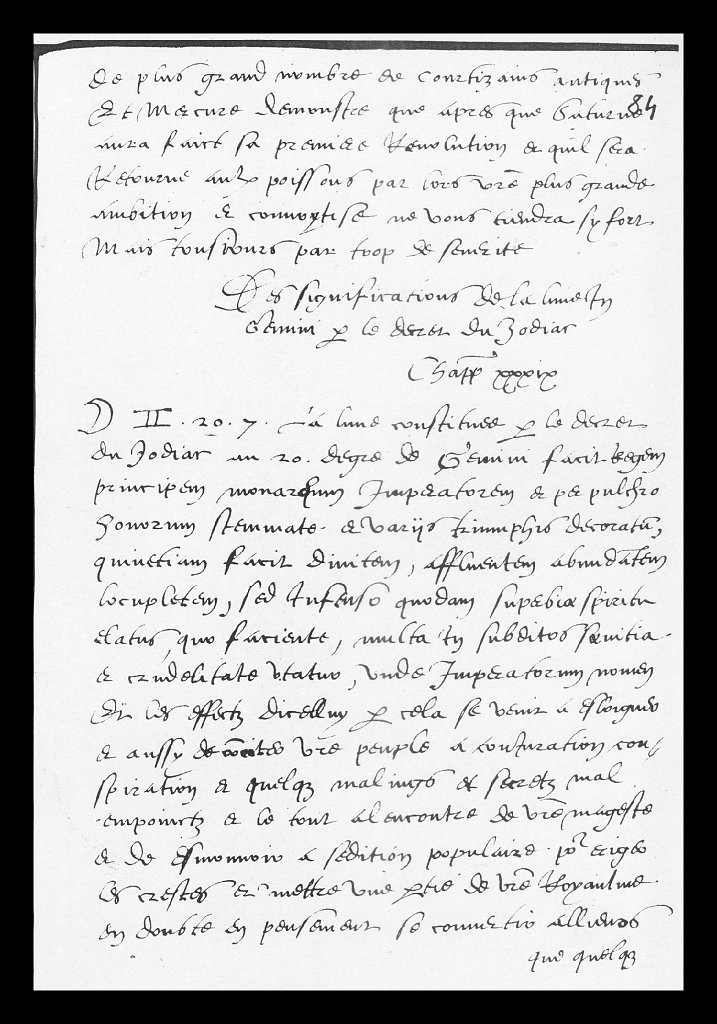 de plus grand nombre de Courtizains antiques
84
Et Mercure demonstre que apres que Saturne
aura faict sa premiere Revolution et quil sera
Retourne aux poissons par lors vre plus grande
ambition et convoytise ne vous tiendra sy fort
Mais tousiours par trop de severite
Des significations de la lune In
Gemini p le decret du Zodiac
Chapp xxxix
D II . 20 . 7 . La lune constituee p le decret
du Zodiac au 20. degre de Gemini facit Regem
principem monarchum Imperatorem et per pulchro
honorum stemmate et varijs triumphis decoratu,
quinetiam facit divitem, affluentem abundatem
locupletem, sed Infenso quodam superbiæ spiritu
elatus, quo faciente, multa in subditos sævitia
et crudelitate utatur, unde Imperatorum nomen
Et les effectz dicelluy p cela se venir a esloigner
et aussy vre peuple a conjuration con-
spiration et quelqz malings et secretz mal
empoinctz et le tout alencontre de vre mageste
et de esmouvoir a sedition populaire por eriger
les crestes et mettre une ptie de vre Royaulme
en doubte en pensement se convertir allieurs
que quelqz